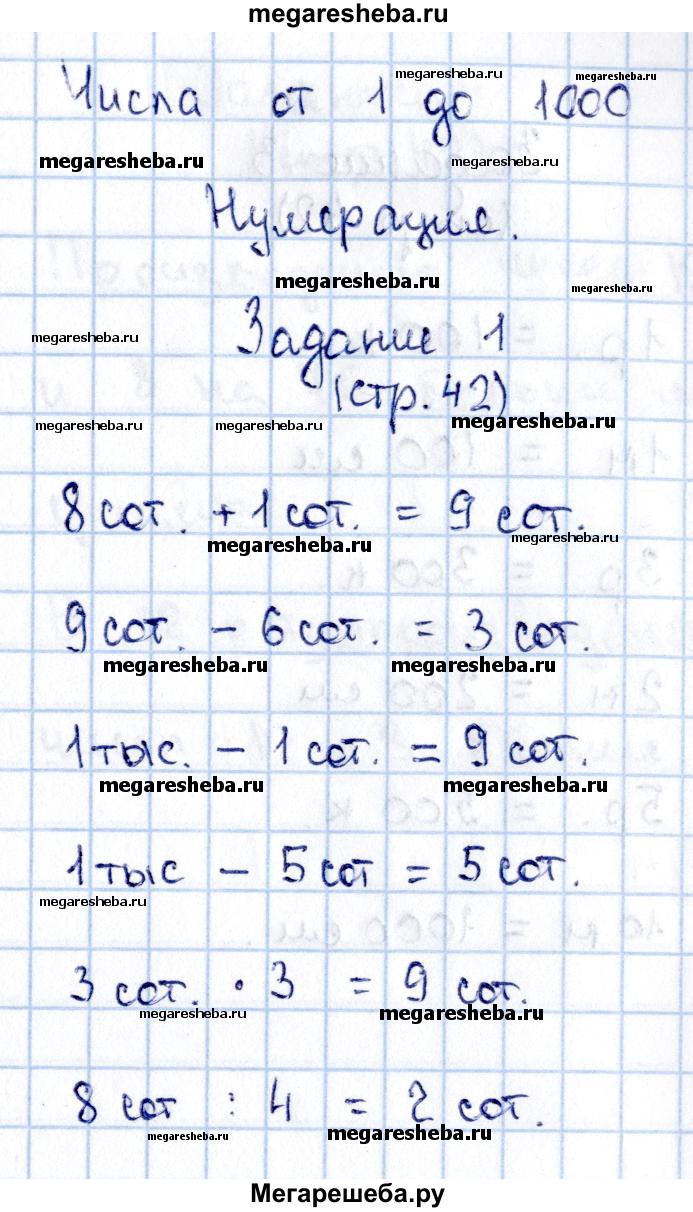 megaresheba.ru
megaresheba.ru megaresheba.ru
Числа от 1 до 1000
megaresheba.ru megaresheba.ru
Нумерация.
megaresheba.ru megaresheba.ru
megaresheba.ru Задание 1
(стр. 42)
megaresheba.ru megaresheba.ru megaresheba.ru
8 сот. + 1 сот. = 9 сот.
megaresheba.ru megaresheba.ru
9 сот. - 6 сот. = 3 сот.
megaresheba.ru megaresheba.ru
1 тыс. - 1 сот. = 9 сот.
megaresheba.ru megaresheba.ru
1 тыс - 5 сот = 5 сот.
megaresheba.ru
3 сот. · 3 = 9 сот.
megaresheba.ru megaresheba.ru
8 сот : 4 = 2 сот.
megaresheba.ru megaresheba.ru
Мегарешеба.ру